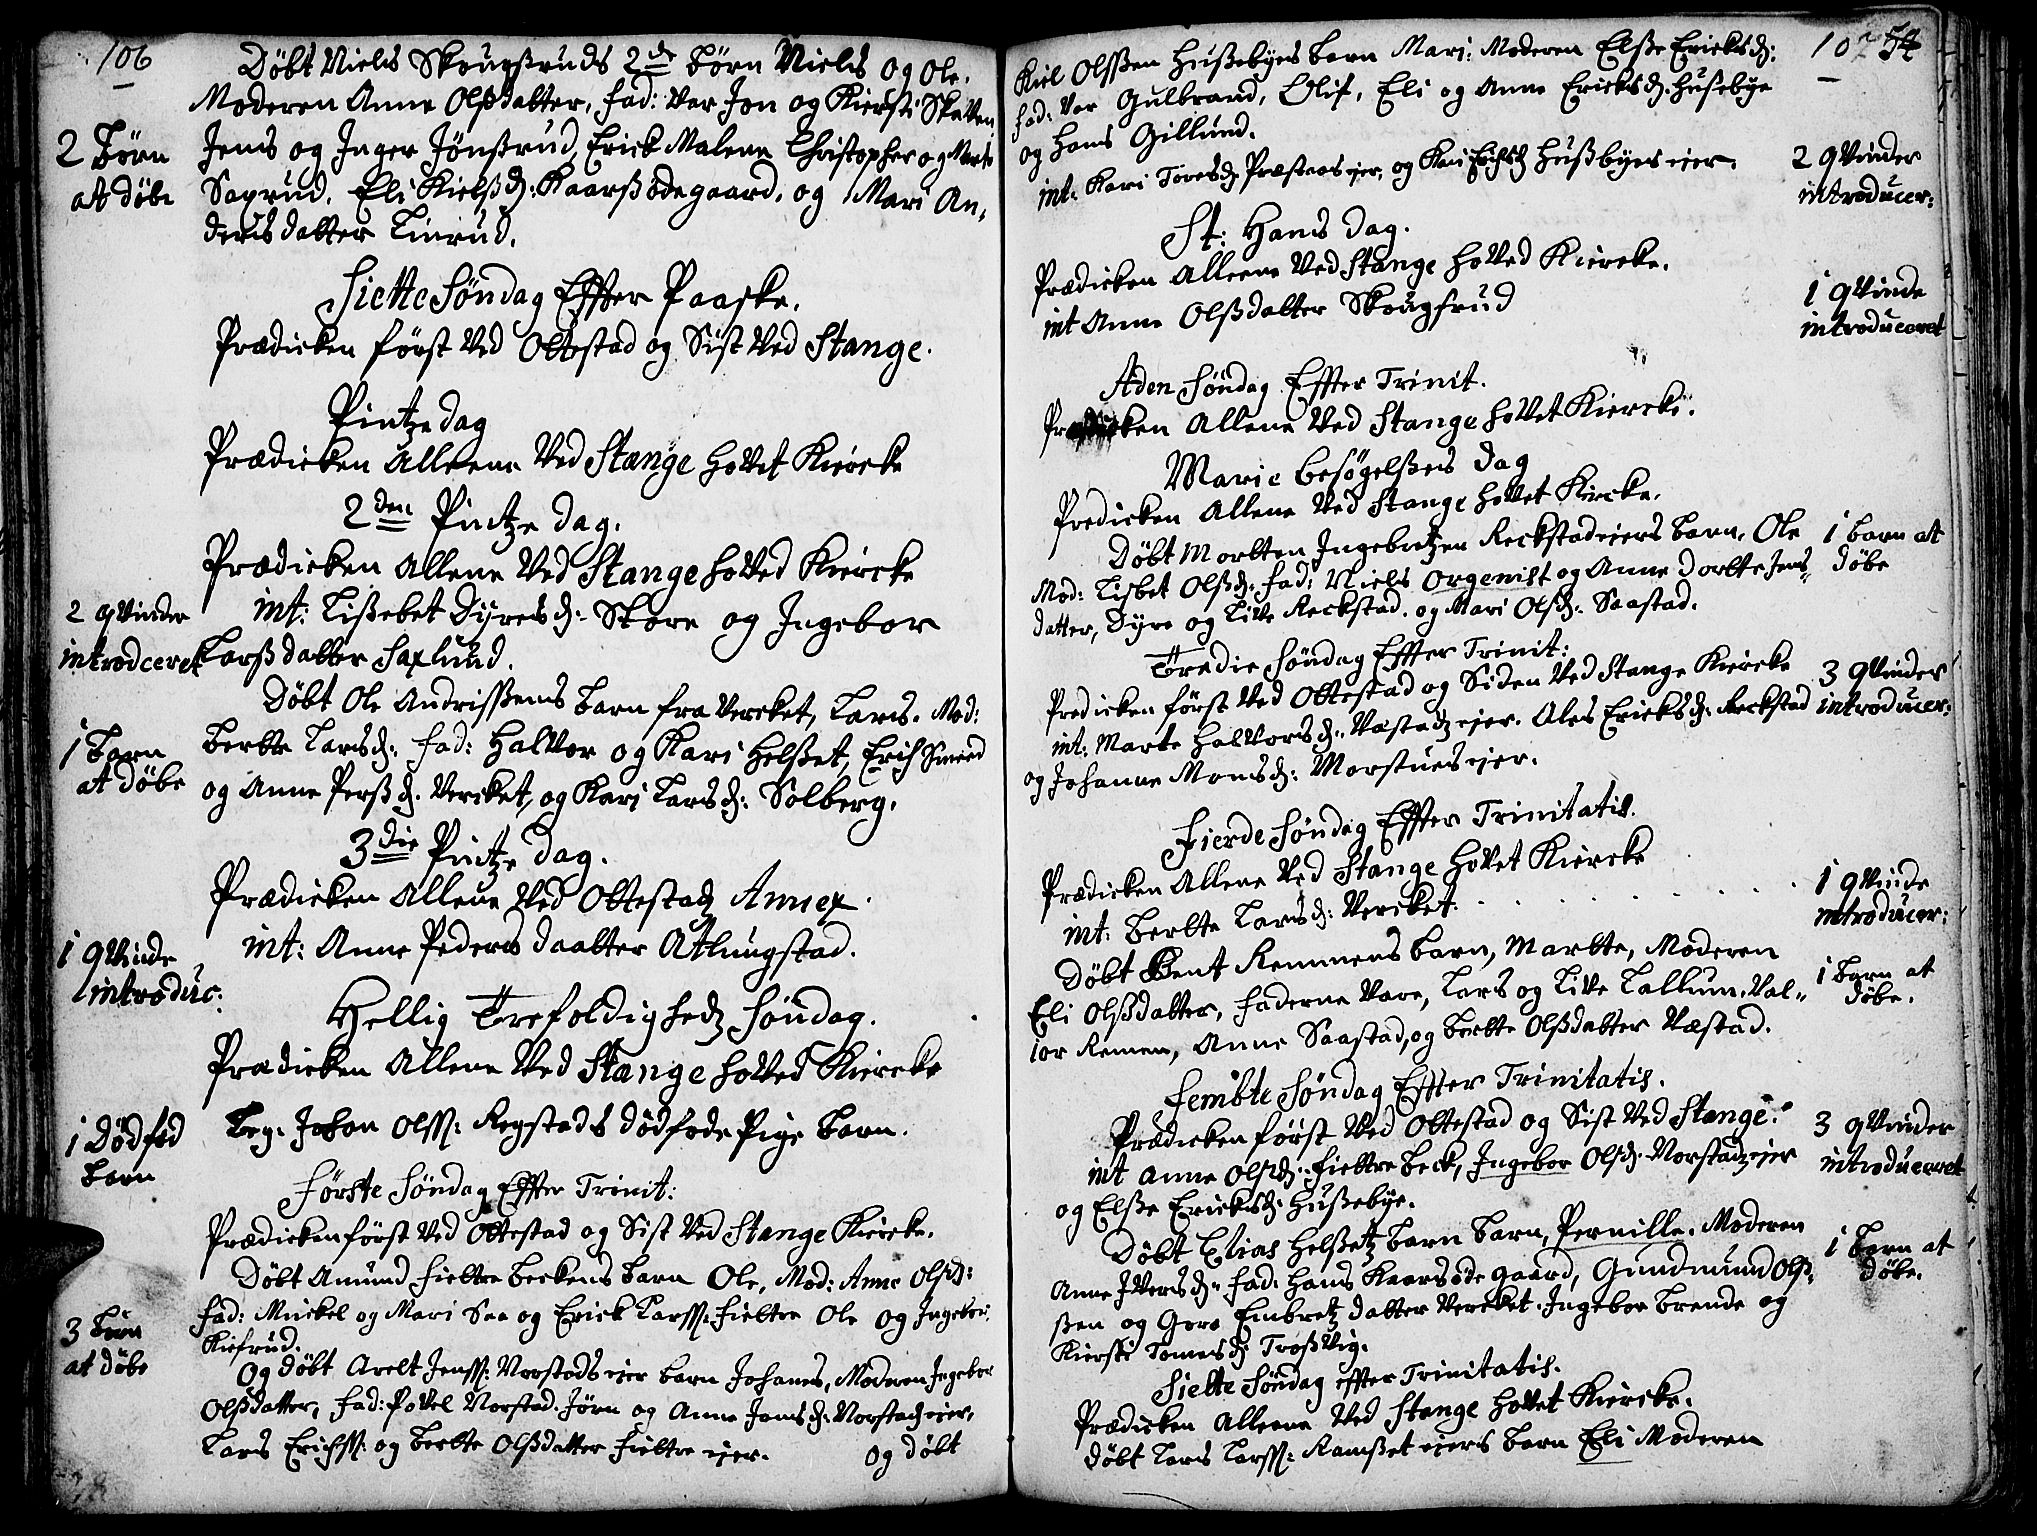 106
Døbt Niels Skougsruds 2de Børn Niels og Ole.
Moderen Anne Olsdatter, fad: var Jon og Kiersti Skatten
Jens og Inger Jønsrud, Erick Malene Christopher og Marte
Saxrud, Eli Kielsd: Kaarsødegaard, og Mari An,
dersdatter Linrud.
2 Børn
at døbe
Siette Søndag Effter Paaske.
Prædicken først Ved Ottestad og Sist Ved Stange.
Pintzedag
Prædicken Alleene Ved Stange hovet Kiercke
2den Pintze dag.
Prædicken Allene Ved Stange hoved Kiercke
int: Lissebet Dyresd: Skore og Ingebor
Larsdatter Saxlund.
2 qvinder
introdceret
Døbt Ole Andrissens barn fra Vercket, Lars. Mod:
Berthe Larsd: fad: Halvor og Kari Helset, Erich Smed
og Anne Persd: Vercket, og Kari Larsd: Solberg.
1 barn
at døbe
3die Pintze dag.
Prædicken Allene Ved Ottestad Annex.
int: Anne Peders daatter Atlungstad.
1 qvinde
introduc:
Hellig Trefoldigheds Søndag.
Prædicken Allene Ved Stange hoved Kiercke
Beg: Johan Olss: Regstads dødføde Pige barn.
1 Dødfød
barn
Første Søndag Effter Trinit:
Prædicken først Ved Ottestad og Sist Ved Stange Kiercke.
Døbt Amund fieltre beckens barn Ole, Mod: Anne Olsd:
fad: Mickel og Mari Saa og Erick Larss: fieltre Ole og Ingebor:
Kiefrud.
Og døbt Arelt Jenss: Norstads eier barn Johanes, Moderen Ingebor
Olsdatter, fad: Povel Norstad. Jørn og Anne Jensd: Norstads eier,
Lars Erichss: og berthe Olsdatter fieltre eier.
og døbt
3 børn
at døbe
107
Kiel Olssen Hussebyes barn Mari: Moderen Else Ericksd:
fad: var Gulbrand, Olif, Eli og Anne Ericksd: Husebye
og Hans Gillund.
int: Kari Toresd: Præsteseier, og Kari Erichsd: Husbyeseier.
2 qvinder
introducer:
St: Hans Dag.
Prædicken Alleene Ved Stange hoved Kiercke.
int Anne Olsdatter Skougsrud
1 qvinde
introduceret
Aden Søndag Effter Trinit.
Prædicken Allene Ved Stange hovet Kiercke.
Marie besøgelses Dag
Predicken Allene Ved Stange hovet Kircke.
Døbt Morten Ingebretzen Reckstadeiers barn, Ole
Mod: Lisbet Olsd: fad: Niels Orgenist og Anne Dorthe Jens=
datter, Dyre og Live Reckstad. og Mari Olsd: Saastad.
1 barn at
døbe
Tredie Søndag Effter Trinit:
Predicken først Ved Ottestad og Siden Ved Stange Kiercke
int: Marte Halvorsd: Væstadz eier. Ales Ericksd: Reckstad
og Johanne Monsd: Morstueseier.
3 qvinder
introducer:
Fierde Søndag Effter Trinitatis.
Prædicken Allene Ved Stange hovet Kiercke
int: Berthe Larsd: Vercket.
1 qvinde
introducer:
Døbt Bent Remmens barn, Marthe, Moderen
Eli Olsdatter, faderne Vare, Lars og Live Lallum, Val=
ior Remen, Anne Saastad, og berthe Olsdatter Væstad.
1 barn at
døbe.
Fembte Søndag Effter Trinitatis.
Prædicken først Ved Ottestad og Sist Ved Stange.
int Anne Olsd: fieltre beck, Ingebor Olsd: Norstadz eier
og Else Ericksd: Hussebye.
3 qvinder
introduceret
Døbt Elias Helsetz barn barn, Pernille. Moderen
Anne Iversd: fad: Hans Kaarsøde gaard, Gundmund Ols,
sen og Goro Embretz datter Vercket. Ingebor Brende og
Kiersti Tomesd: Trosvig.
1 barn at
døbe.
Siette Søndag effter Trinitatis.
Prædicken Alleene Ved Stange hovet Kiercke.
døbt Lars Larss: Ramset eiers barn Eli Moderen